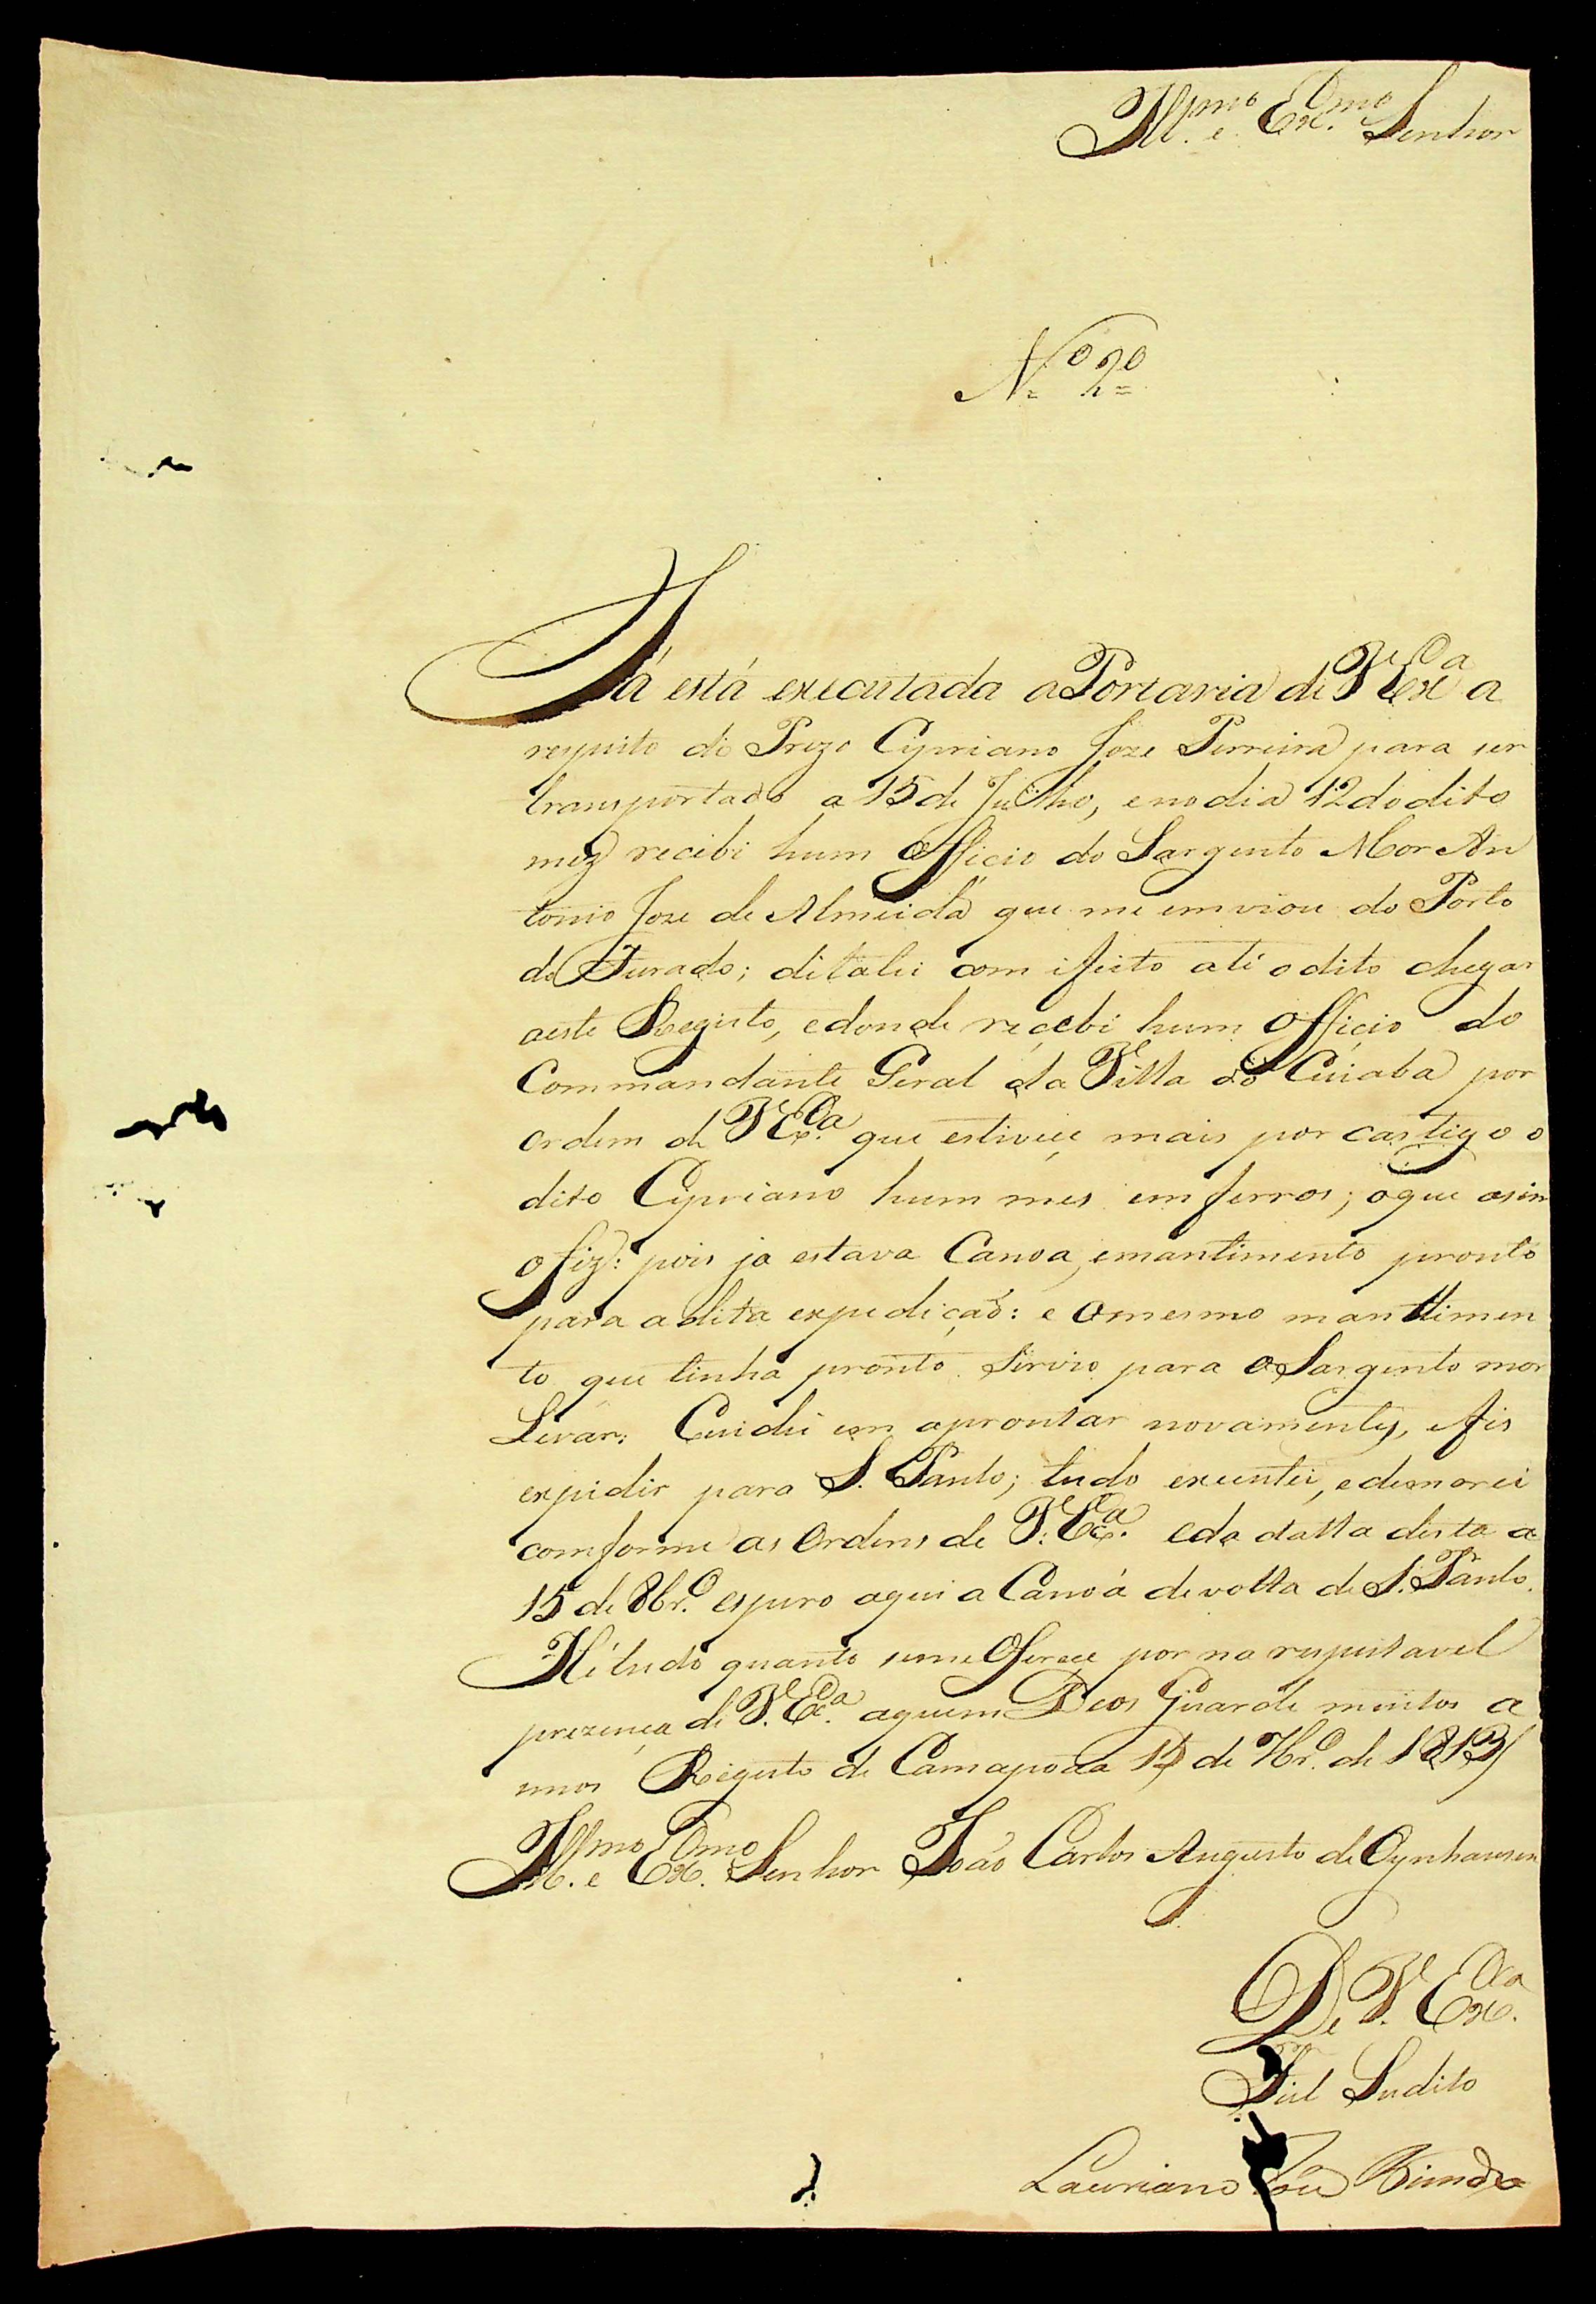 Ill.mo e Ex.mo Senhor
N.o 20
Já está executada aPortaria de V Ex.a a
respeito do Prezo Cypriano Joze Perreira para ser
transportado a 15 de Julho, e no dia 12 do dito
mez recebi hum Officio do Sargento Mor An
tonio Joze de Almeida que me emviou do Porto
do Furado; ditalei com ifeito até o dito chegar
aeste Registo, edonde recebi hum Officio do
Commandante Geral da Villa do Cuiaba por
ordem de V Ex.a que estivece mais por castigo o
dito Cypriano hum mes em ferros; oque asim
o fiz: pois ja estava Canoa, emantimento pronto
para adita expedição: e omesmo manttimen
to que tinha pronto Servio para oSargento mor
Levar: Cuidei em aprontar novamente, efis
expidir para S. Paulo; tudo exeuntei, edemorei
comforme as Ordens de V. Ex.a eda datta desta a
15 de 8br.o espero aqui a Canoá devolta de S. Paulo.
Hé tudo quanto seme Oferece por na respeitavel
prezença de V. Ex.a aquem Deos Guarde muitos a
nnos Registo de Camapoãa 15 de 7br.o de 1813
Ill.mo e Ex.mo Senhor João Carlos Augusto de Oynhausen
De V. Ex.a
Fiel Sudito
Lauriano Joze